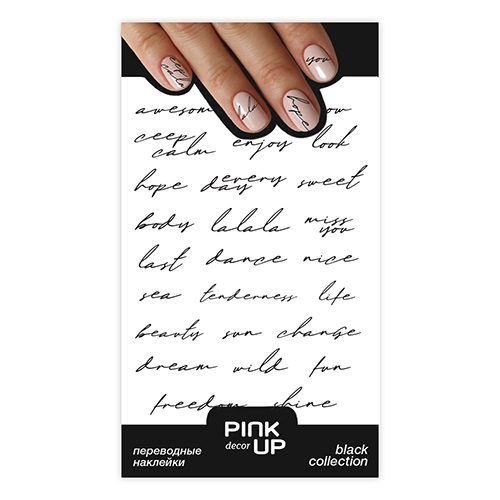 ceep
calm
hope
you
awesom
ow
ceep
calm enjoy look
hope every
day sweet
body lalala miss
you
last dance nice
sea tenderness life
beauty sun change
dream wild fun
freedom shine
PINK
decor UP
переводные
наклейки
black
collection